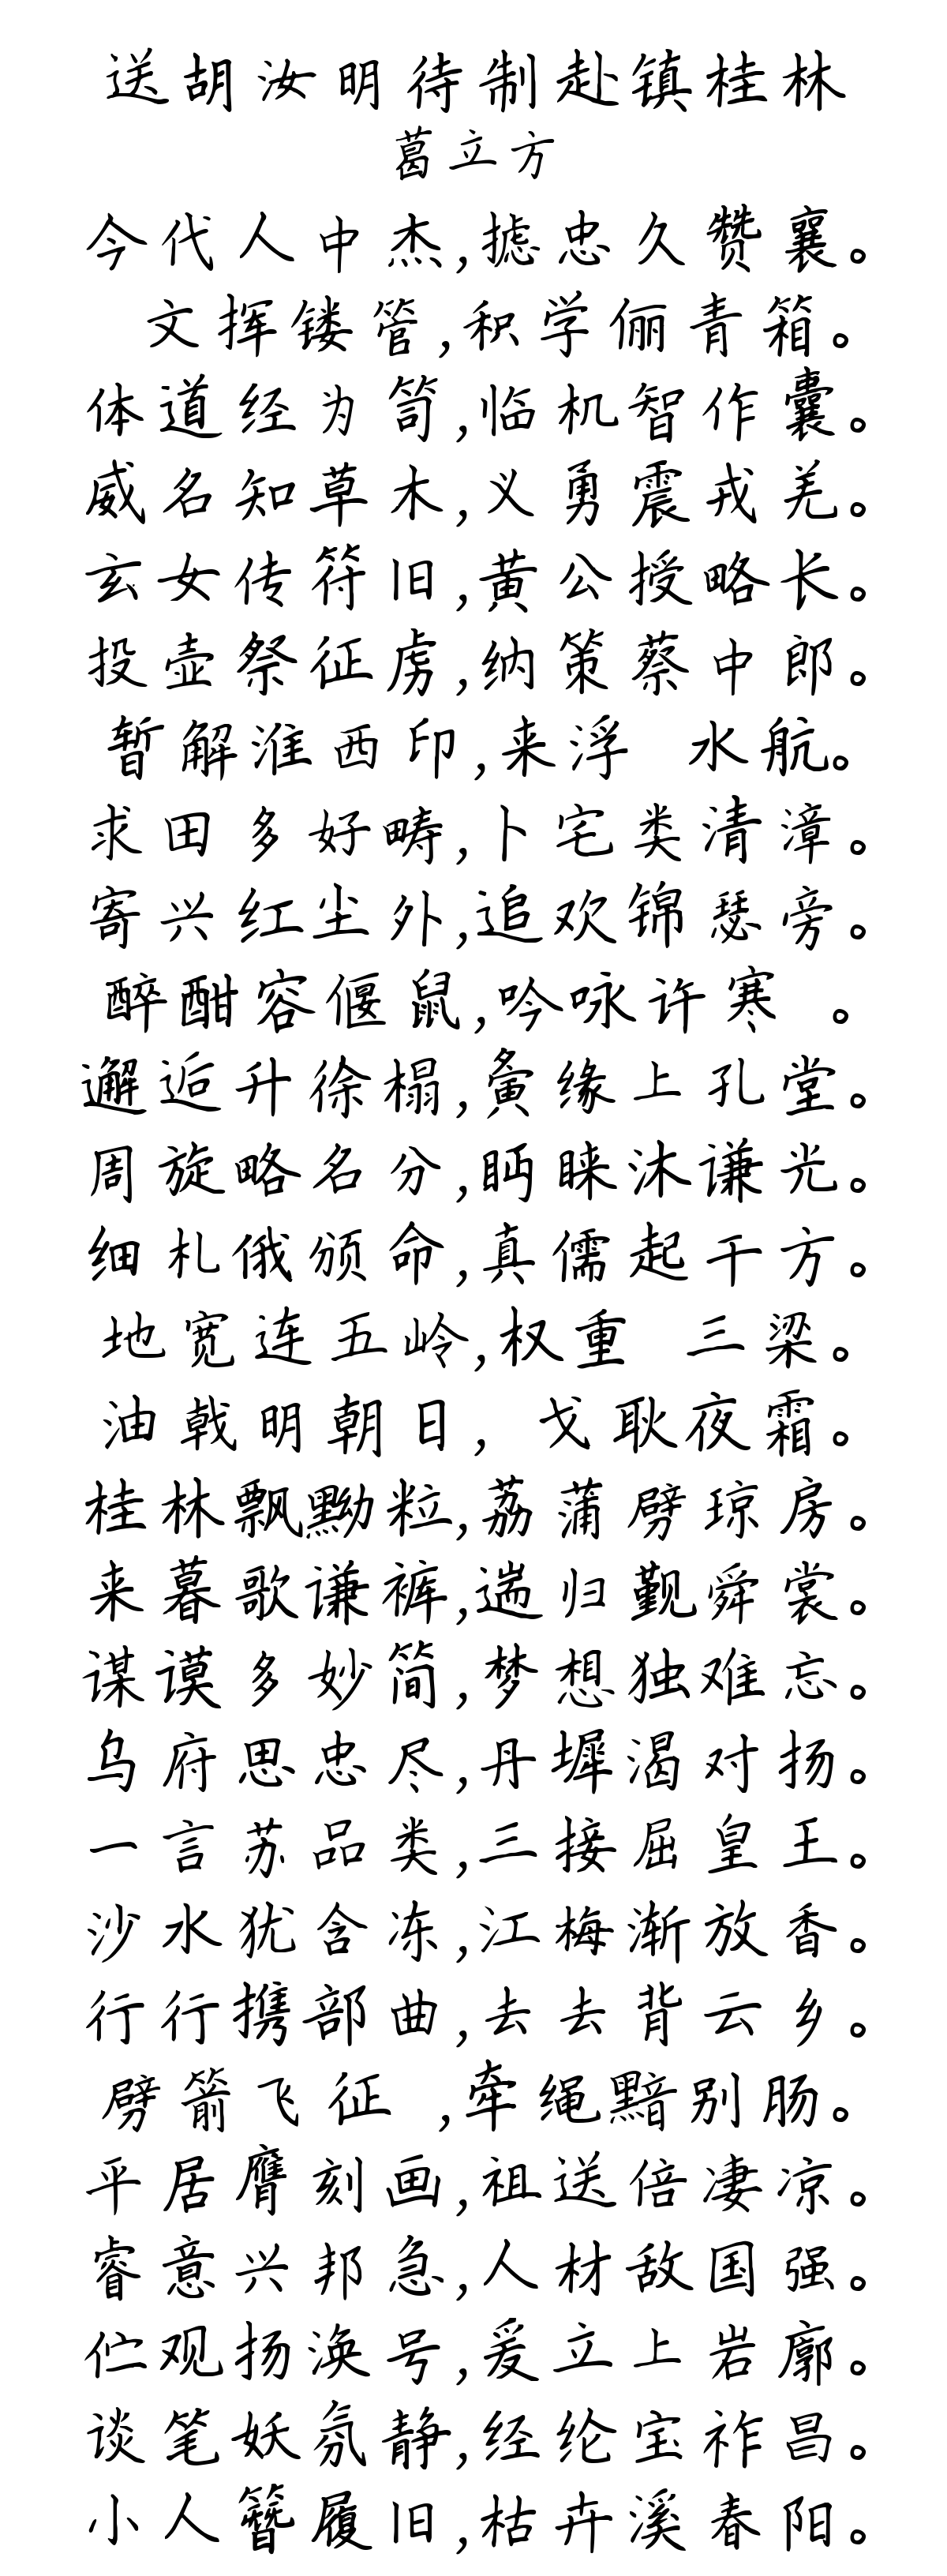 送胡汝明待制赴镇桂林
葛立方
今代人中杰,摅忠久赞襄。
文挥镂管,积学俪青箱。
体道经为笥,临机智作囊。
威名知草木,义勇震戎羌。
玄女传符旧,黄公授略长。
投壶祭征虏,纳策蔡中郎。
暂解淮西印,来浮 水航。
求田多好畴,卜宅类清漳。
寄兴红尘外,追欢锦瑟旁。
醉酣容偃鼠,吟咏许寒 。
邂逅升徐榻,夤缘上孔堂。
周旋略名分,眄睐沐谦光。
细札俄颁命,真儒起干方。
地宽连五岭,权重 三梁。
油戟明朝日, 戈耿夜霜。
桂林飘黝粒,荔蒲劈琼房。
来暮歌谦裤,遄归觐舜裳。
谋谟多妙简,梦想独难忘。
乌府思忠尽,丹墀渴对扬。
一言苏品类,三接屈皇王。
沙水犹含冻,江梅渐放香。
行行携部曲,去去背云乡。
劈箭飞征 ,牵绳黯别肠。
平居膺刻画,祖送倍凄凉。
睿意兴邦急,人材敌国强。
伫观扬涣号,爰立上岩廓。
谈笔妖氛静,经纶宝祚昌。
小人簪履旧,枯卉溪春阳。